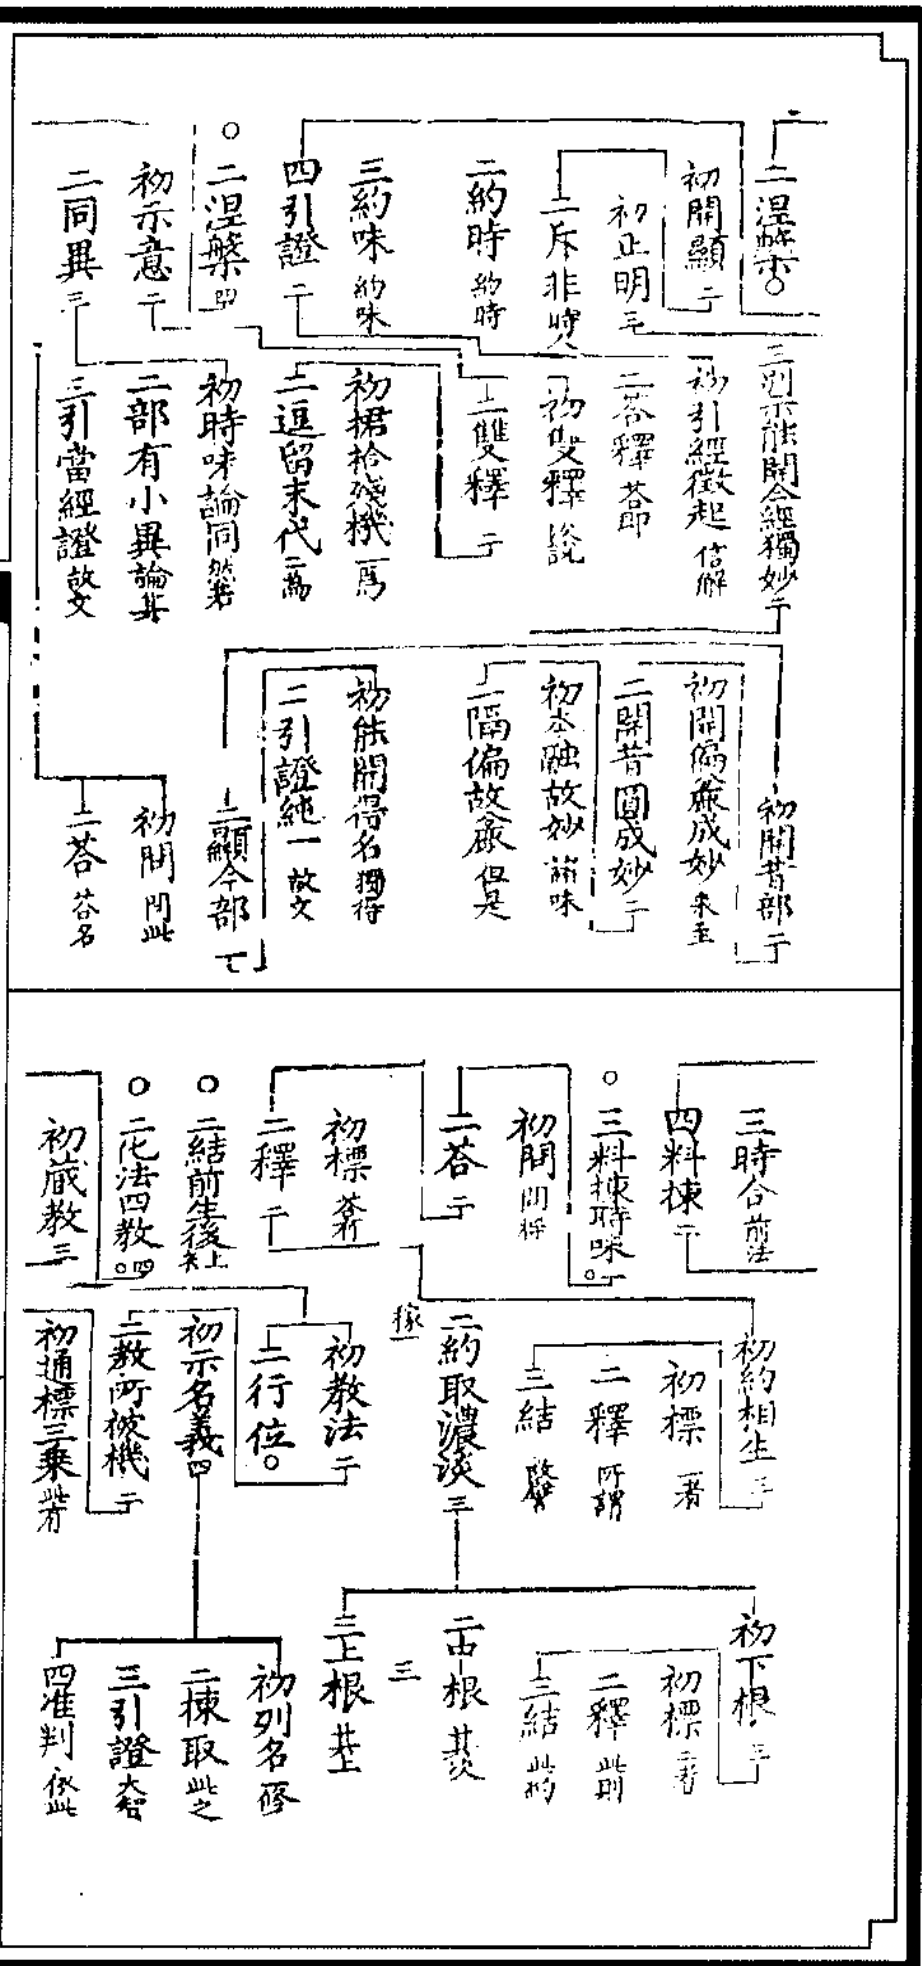 二涅槃○
初開顯 二
初正明 三
二斥非 時人
二約時 約時
三約味 約味
四引證 二
○二涅槃 四
初示意 二
二同異 三
三別示能開今經獨妙 二
初引經徵起 信解
二荅釋 荅即
初雙釋
二雙釋 二
初捃拾殘機 一爲
二逗留末代 二爲
初時味論同 然若
二部有小異論其
三引當經證 故文
初開昔部 二
初開偏麤成妙 來至
二開昔圓成妙 二
初本融故妙 前味
二隔偏故麤 但是
初能開得名 獨得
二引證純一 故文
二顯今部 二
初問 問此
二荅 荅名
三時合 前法
四料揀 二
○三料揀時味 二○
初問 問將
二荅 二
初標 荅行
二釋 二
○二結前生後 上來
○二化法四教 四○
初藏教 三
初約相生 三
初標 一者
二釋 所謂
三結
二約取濃淡 三
初教法 二
二行位○
初示名義 四
二教所被機 二
初通標三乘 此有
初下根 三
初標 二者
二釋 此則
三結 此約
二中根 其次
三上根 其上
三
初列名 修
二揀取 此之
三引證 大智
四准判 依此